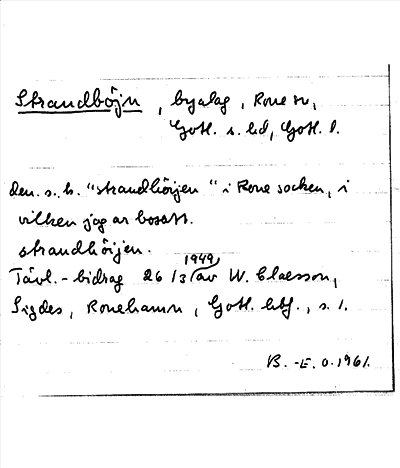 Strandböjn, byalag, Rone sn,
Gotl. s. hd, Gotl. l.
den s. k. "strandhöijen" i Rone socken, i
vilken jag är bosatt.
strandhöijen.
Tävl.-bidrag 26/3 1949 av W. Claesson,
Sigdes, Ronehamn, Gotl. hbf., s. 1.
B.-E. O. 1961.